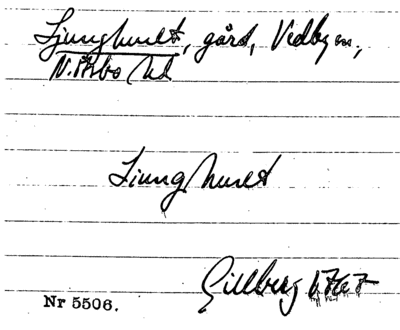 Ljunghult, gård, Vedby sn,
N. Åsbo hd
Liunghult
Gillberg 1767
Nr 5506.